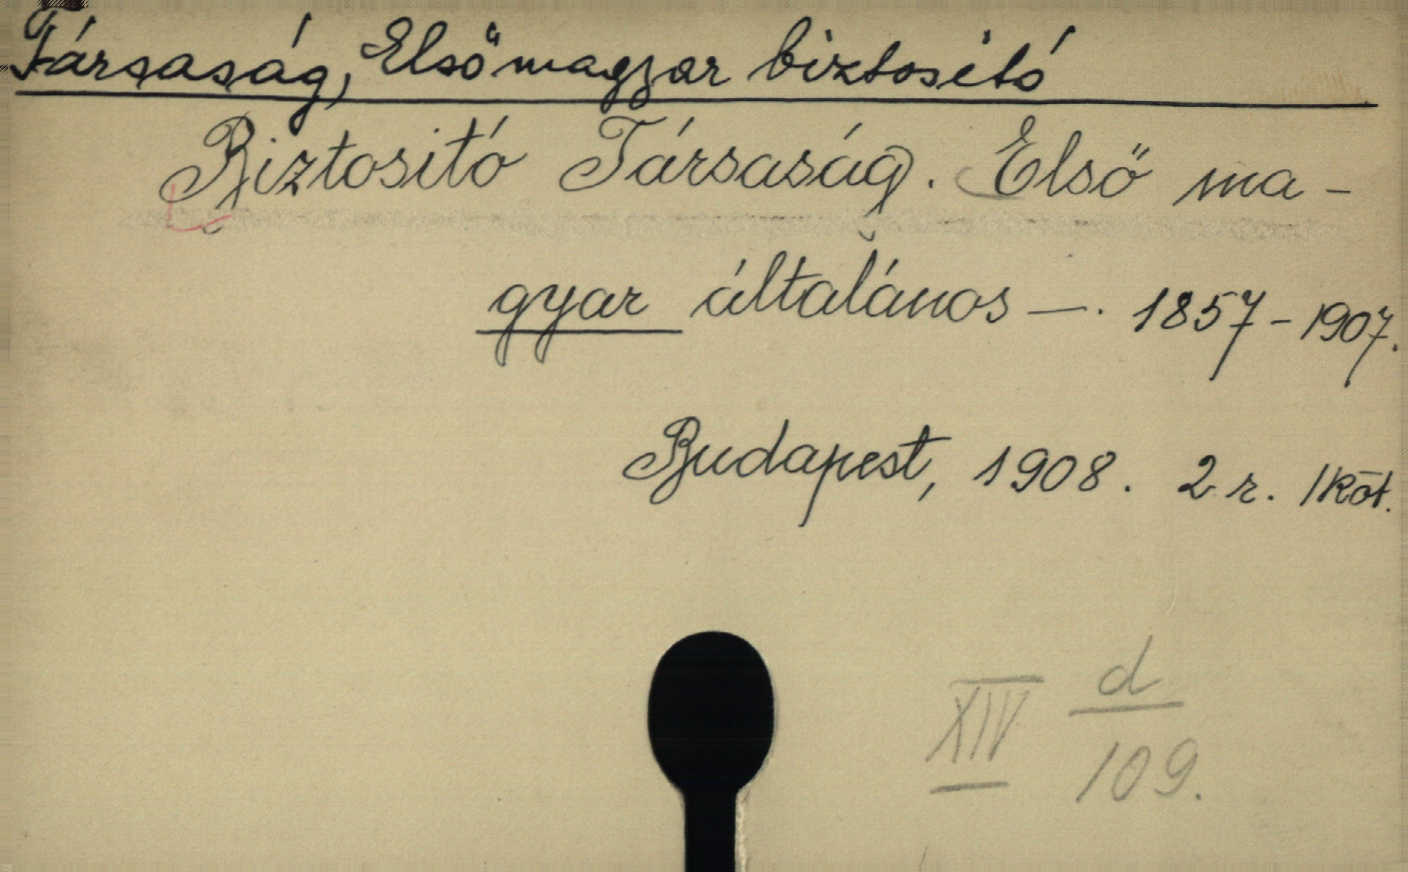 Társaság, Első magyar biztosító
Biztositó Társaság. Első ma-
gyar általános —. 1857-1907.
Budapest, 1908. 2 r. 1 köt.
XIV d/109.